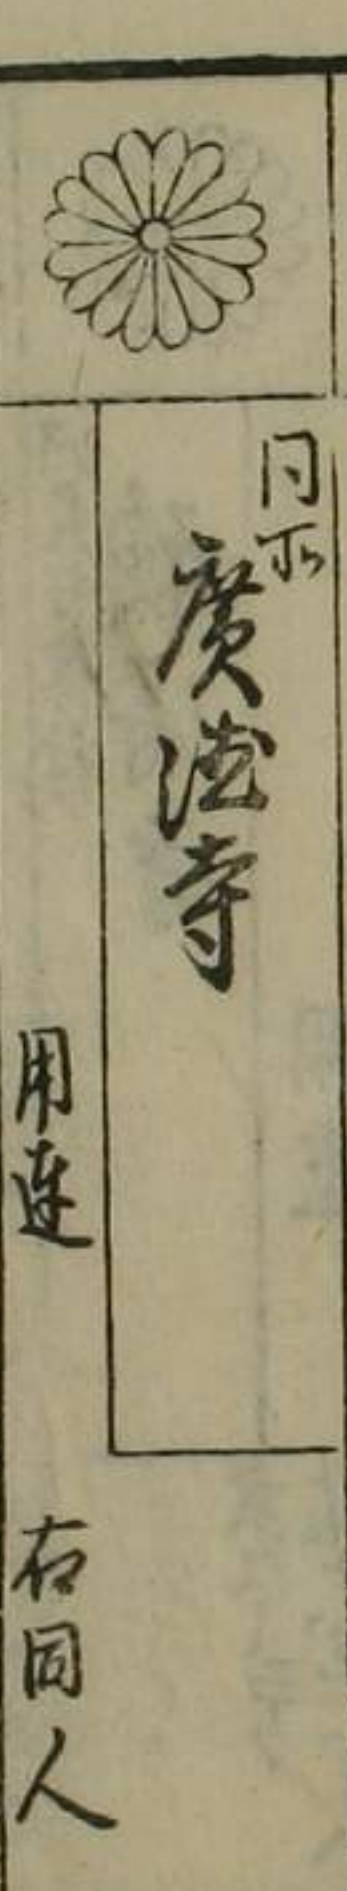 同所
廣徳寺
用達
右同人